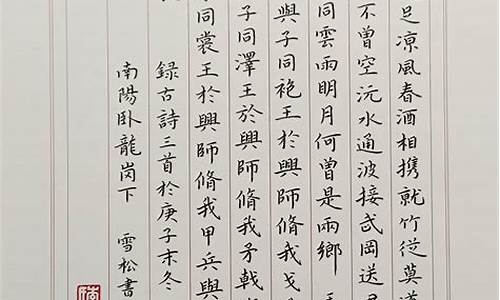 足凉風春酒相携就竹從莫
不曾空沅水通波接武岡送
同雲雨明月何曾是兩鄉
與子同袍王於興師脩我戈
子同澤王於興師脩我矛戟
同裳王於興師脩我甲兵與
録古詩三首於庚子末冬
南陽卧龍崗下 雪松書